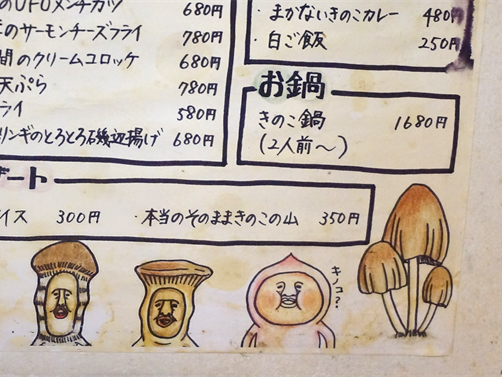 のUFOメンチカツ 680円
のサーモンチーズフライ 780円
間のクリームコロッケ 680円
天ぷら 780円
ライ 580円
リンギのとろとろ磯辺揚げ 680円
・まかないきのこカレー 480円
・白ご飯 250円
お鍋
きのこ鍋 1680円
(2人前〜)
ザート
イス 300円
・本当のそのまままきのこの山 350円
キノコ?